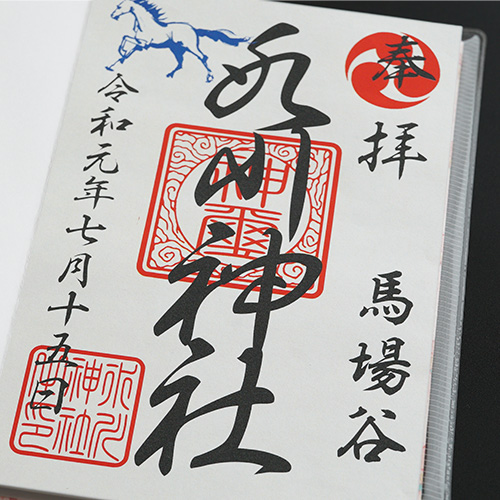 奉拝　馬場谷
氷川神社
神璽
令和元年七月十五日
氷川
神社
之印